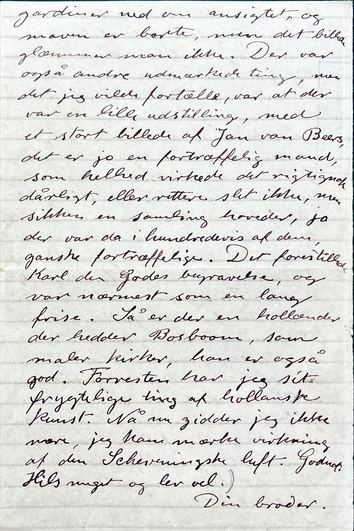 gardiner ned om ansigtet, og
maven er borte, men det billede
glemmer man ikke. Der var
også andre udmærkede ting, men
det jeg vilde fortælle, var at der
var en lille udstilling, med
et stort billede af Jan van Beers,
det er jo en fortræffelig mand,
som helhed virkede det rigtignok
dårligt, eller rettere slet ikke, men
sikken en samling hoveder, jo
der var da i hundredevis af dem,
ganske fortræffelige. Det forestillede
Karl den Godes begravelse, og
var nærmest som en lang
frise. Så er der en hollænder
der hedder Bosboom, som
maler kirker, han er også
god. Forresten har jeg set
frygtelige ting af hollanske
kunst. Nå nu gidder jeg ikke
mere, jeg kan mærke virkning
af den Scheveningske luft. Godnat.
Hils meget og lev vel.)
Din broder.